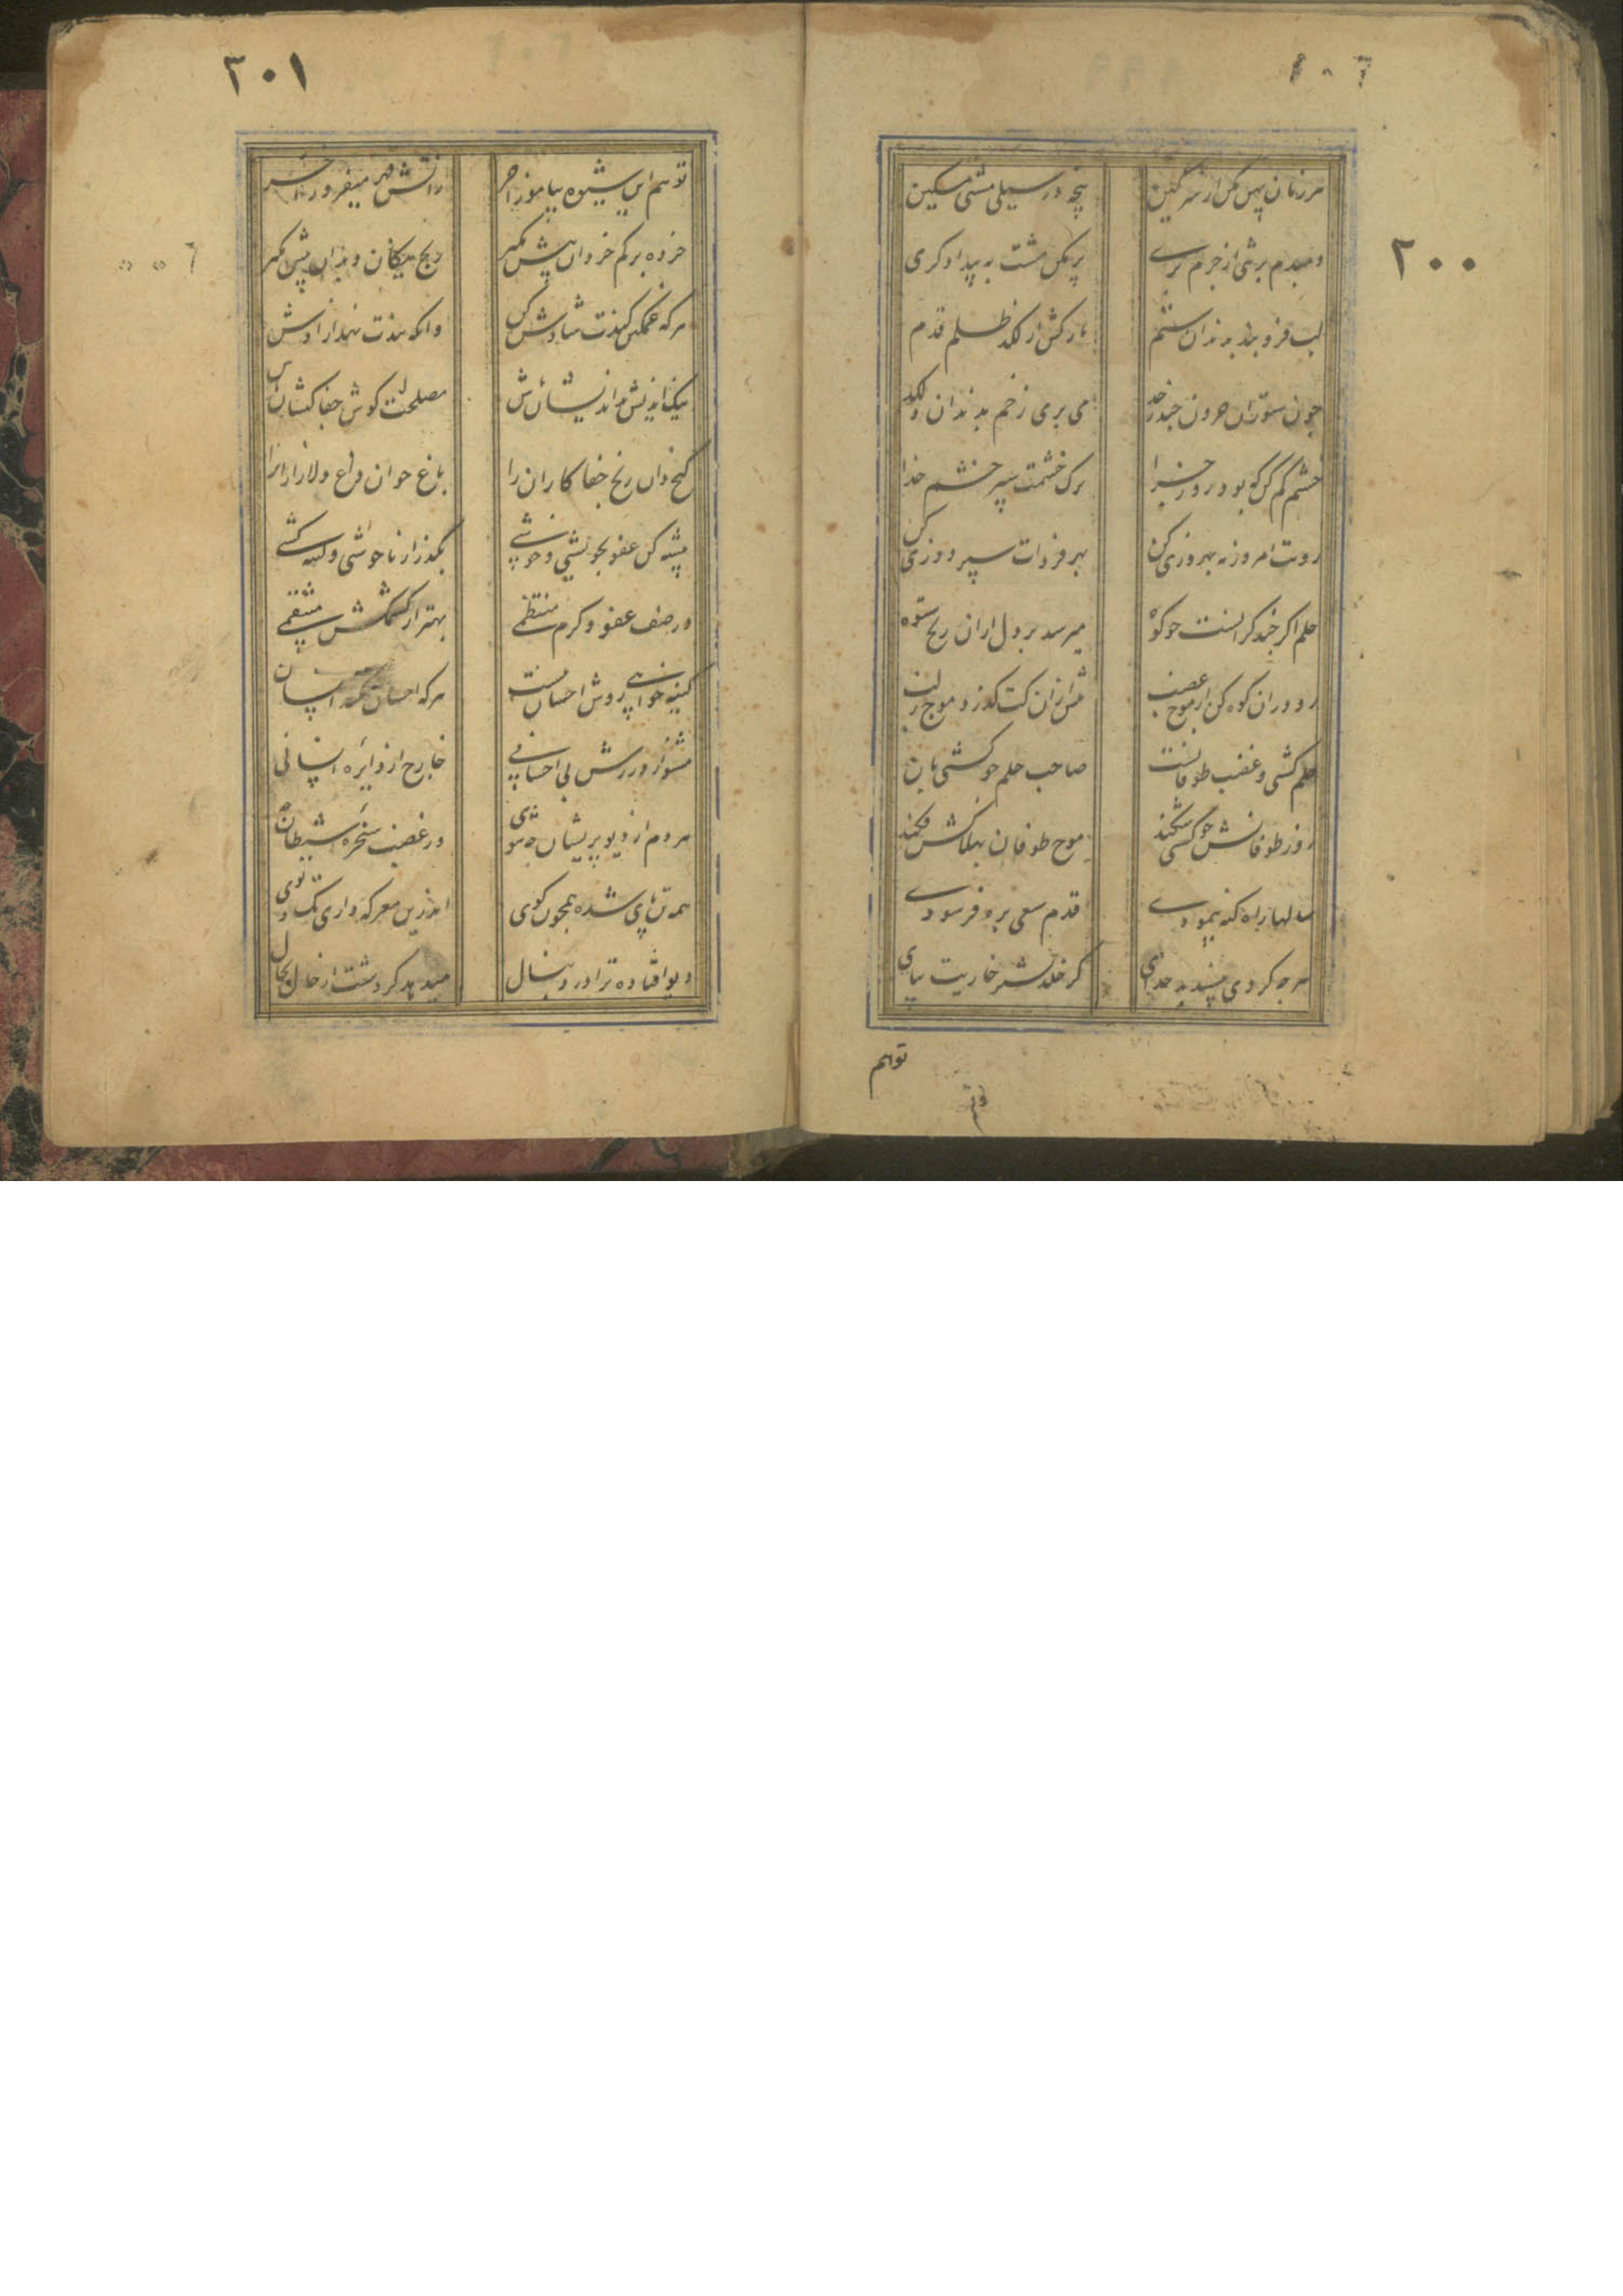 ۲۰۰
هر زمان پهن مکن از سر کین
پنجه در سیلی مشتی مسکین
دمبدم برشی از جرم بری
پر مکن مشت به بیدادگری
لب فرو بند بدندان ستم
بازکش از لکد ظلم قدم
چون ستوران حرون چند ز حد
می بری زخم بدندان و لکد
خشم کم کن که بود روز جزا
ترک خشمت سپر خشم خدا
روت امروز به بهروزی کن
بهر فردات سپر دوزی کن
حلم اکر چند کرانست چو کوه
میرسد بر دل ازان رنج ستوه
رو دران کوه کن از موج غضب
پیش ازان کت کذرد موج ز لب
حلم کشتی و غضب طوفانست
صاحب حلم چو کشتی بان
روز طوفانش چو کشتی شکند
موج طوفان بهلاکش فکند
سالها راه کنه پیمودی
قدم سعی بره فرسودی
هر چه کردی پسندید خدای
کر خلد نشتر خاریت بپای
توهم
۲۰۱
تو هم این شیوه بیاموز آخر
زآتش مهر میفروز آخر
خرده بر کم خردان بیش مکیر
رنج بیکانه و بدان پیش مکیر
هر که غمکین کندت شادش کن
وانکه بندت نهد آزادش کن
نیک اندیش بداندیشان باش
مصلحت کوش جفا کیشان باش
کنج دان رنج جفاکاران را
باغ خوان داغ دلازاران را
پیشه کن عفو نکویی و خوشی
بکذر از ناخوشی و کینه کشی
در صف عفو و کرم منتظمی
بهتر از کشمکش منتقمی
کینه خواهی روش احسان نیست
هر که احسان نکند انسان
مشو از ورزش بی احسانی
خارج از دایره انسانی
مردم از دیو پریشان چه شوی
در غضب سخره شیطان
همه تن پای شده همچون کوی
اندرین معرکه داری تک و پوی
دیو افتاده ترا در دنبال
میدهد کردشت از حال بحال